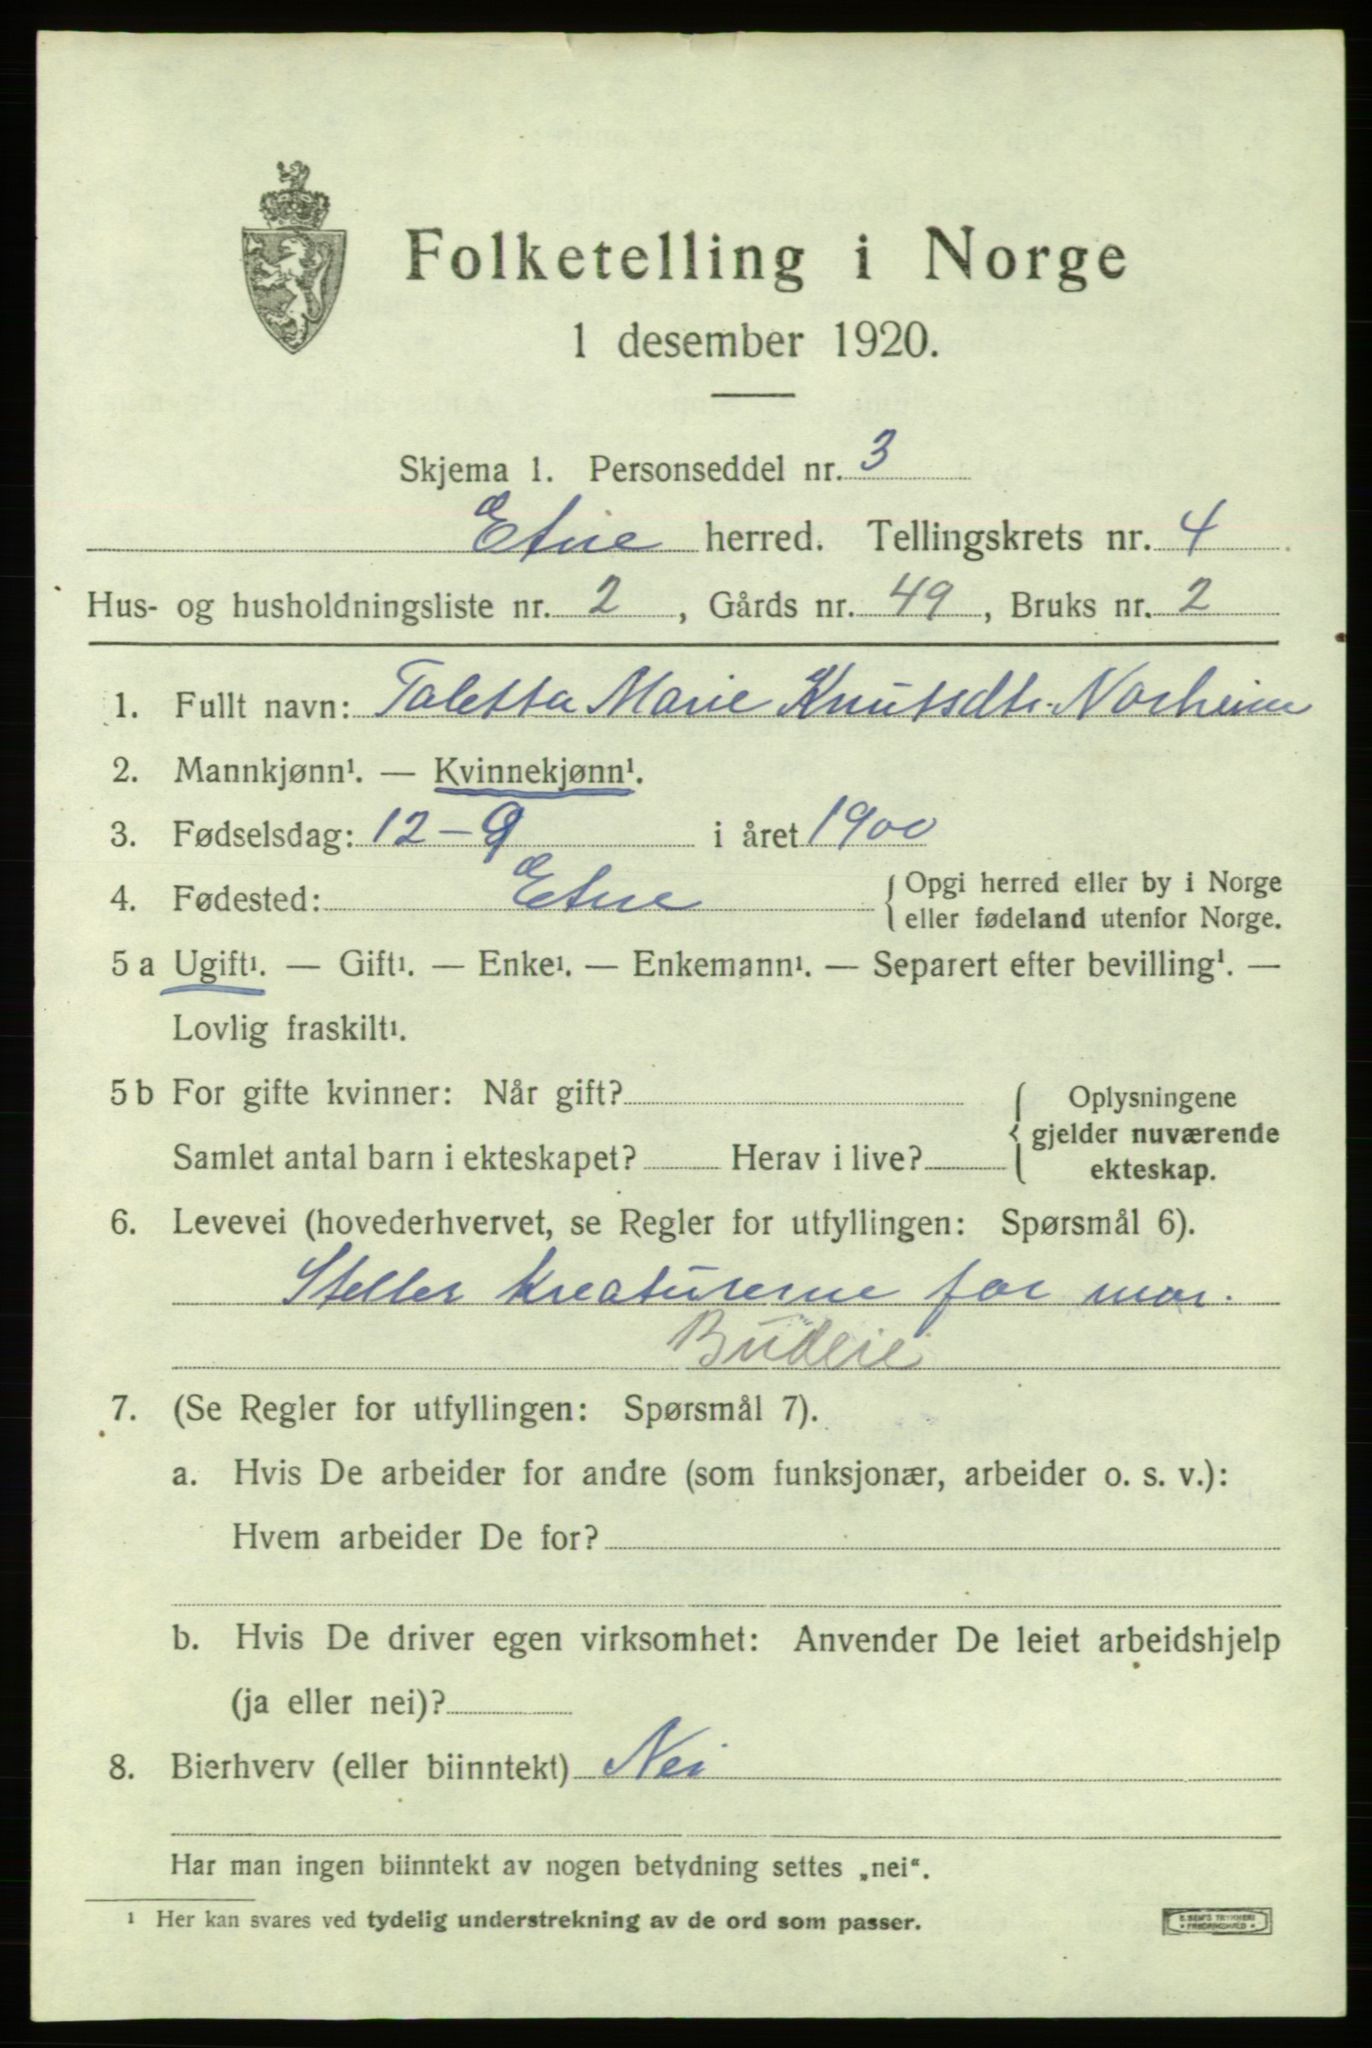 Folketelling i Norge
1 desember 1920.
Skjema 1. Personseddel nr. 3
Etne herred. Tellingskrets nr. 4
Hus- og husholdningsliste nr. 2, Gårds nr. 49, Bruks nr. 2
1. Fullt navn: Taletta Marie Knutsdtr. Norheim
2. Mannkjønn¹. — Kvinnekjønn¹.
3. Fødselsdag: 12-9 i året 1900
4. Fødested: Etne { Opgi herred eller by i Norge
eller fødeland utenfor Norge.
5 a Ugift¹. — Gift¹. — Enke¹. — Enkemann¹. — Separert efter bevilling¹. —
Lovlig fraskilt¹.
5 b For gifte kvinner: Når gift? { Oplysningene
gjelder nuværende
Samlet antal barn i ekteskapet? Herav i live? ekteskap.
6. Levevei (hovederhvervet, se Regler for utfyllingen: Spørsmål 6).
Steller kreaturerne for mor.
Budeie
7. (Se Regler for utfyllingen: Spørsmål 7).
a. Hvis De arbeider for andre (som funksjonær, arbeider o. s. v.):
Hvem arbeider De for?
b. Hvis De driver egen virksomhet: Anvender De leiet arbeidshjelp
(ja eller nei)?
8. Bierhverv (eller biinntekt) Nei
Har man ingen biinntekt av nogen betydning settes „nei“.
¹ Her kan svares ved tydelig understrekning av de ord som passer.